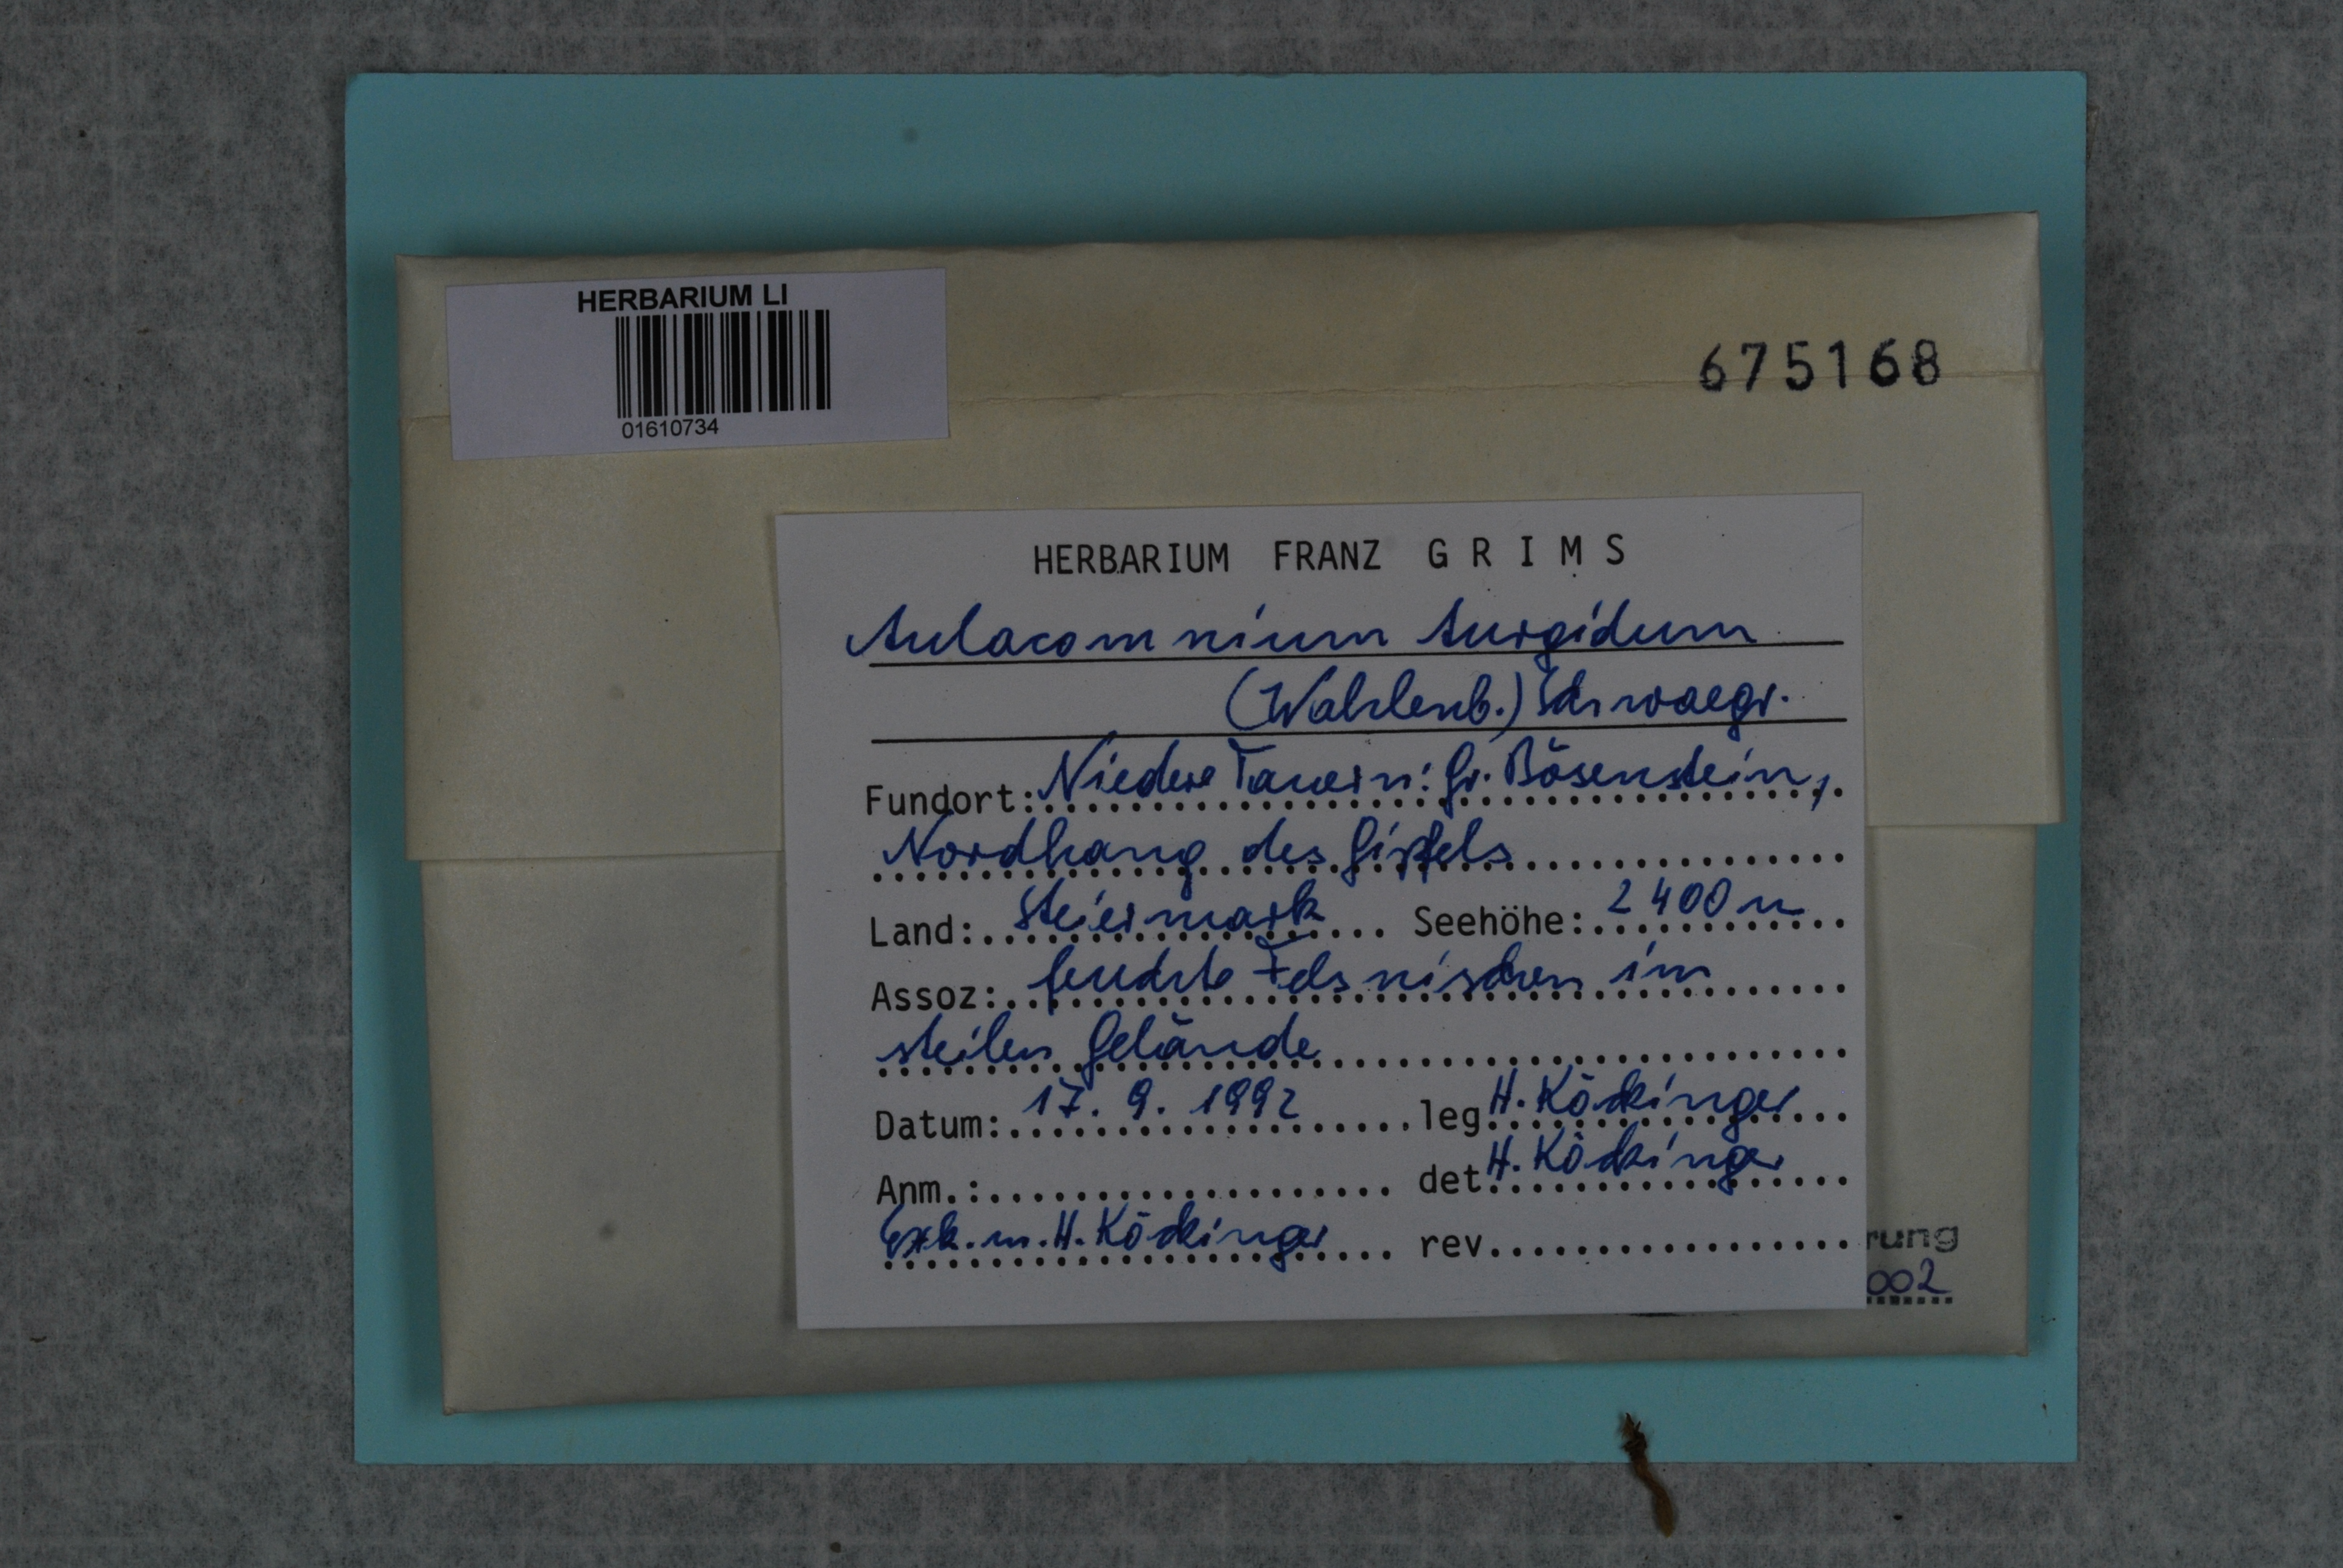 HERBARIUM LI
01610734
675168
HERBARIUM FRANZ GRIMS
Aulacomnium turgidum
(Wahlenb.) Schwaegr.
Fundort: Niedere Tauern: Gr. Bösenstein,
Nordhang des Gipfels
Land: Steiermark Seehöhe: 2400 m
Assoz: feuchte Felsnischen im
steilen Gelände
Datum: 17. 9. 1992 leg H. Köckinger
Anm.: det H. Köckinger
Exk. m. H. Köckinger rev
rung
002